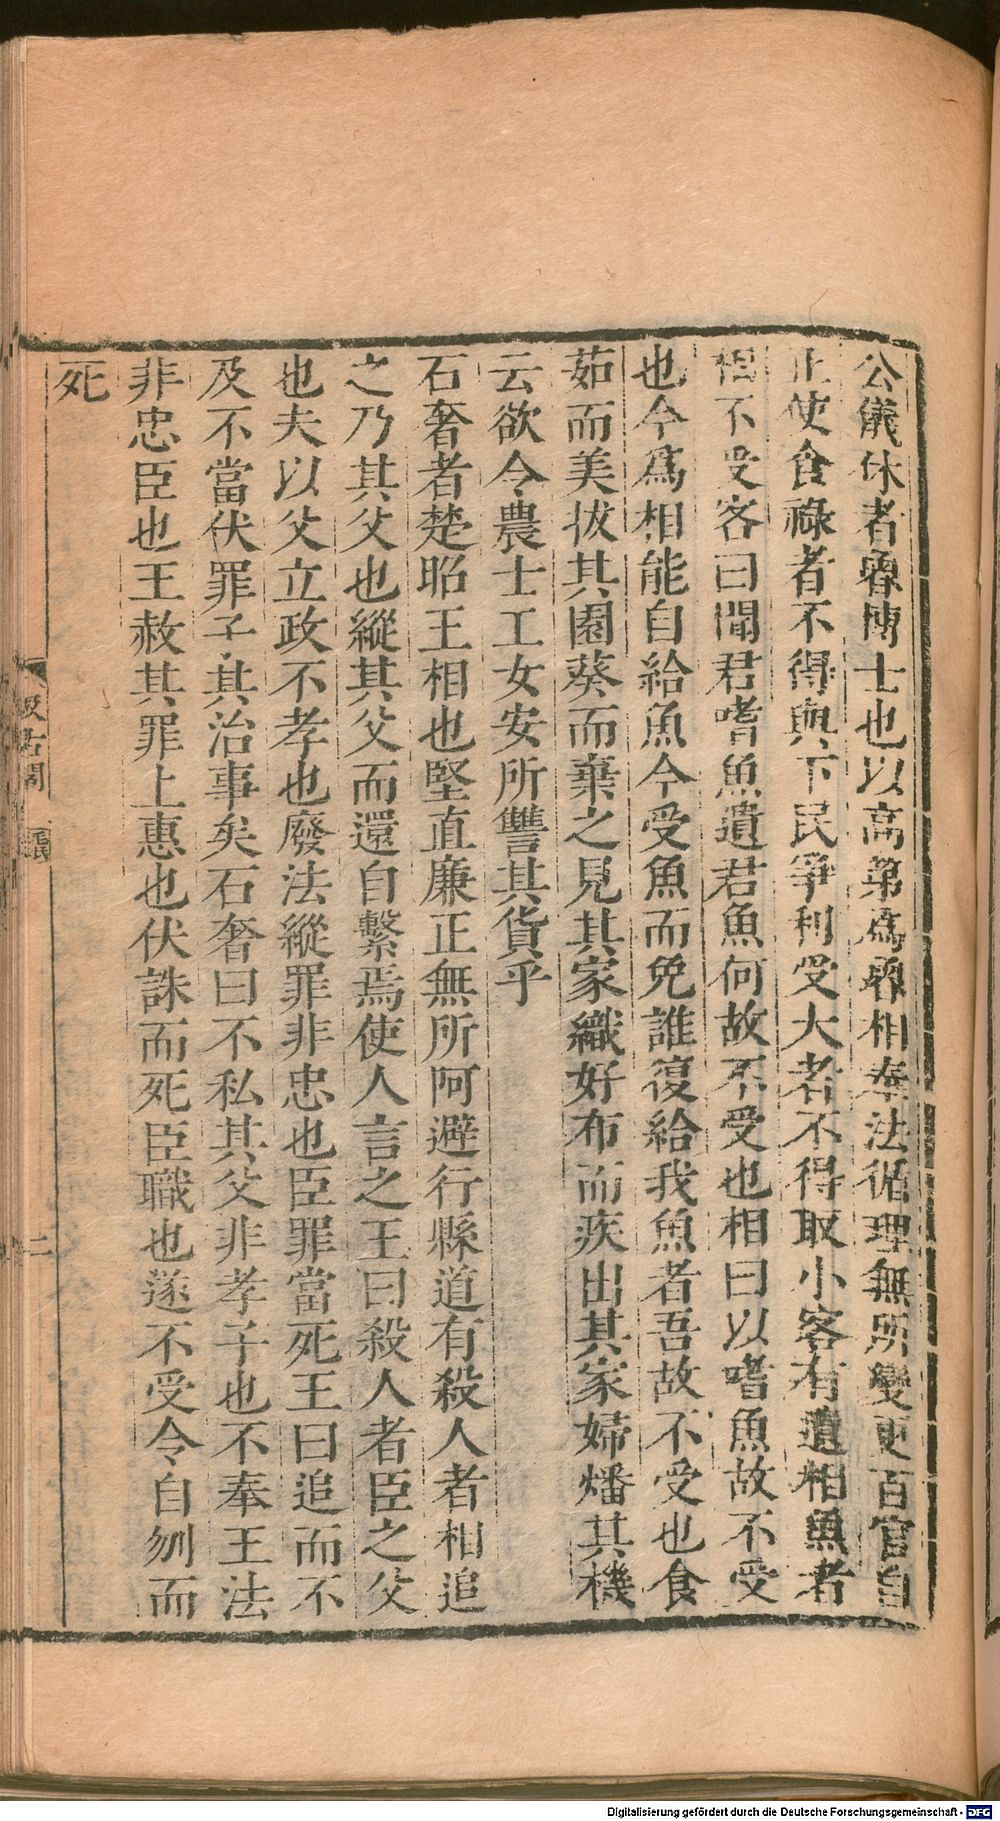 公儀休者魯博士也以高第爲魯相奉法循理無所變更百官自
正使食祿者不得與下民爭利受大者不得取小客有遺相魚者
相不受客曰聞君嗜魚遺君魚何故不受也相曰以嗜魚故不受
也今爲相能自給魚今受魚而免誰復給我魚者吾故不受也食
茹而美拔其園葵而棄之見其家織好布而疾出其家婦燔其機
云欲令農士工女安所讐其貨乎
石奢者楚昭王相也堅直廉正無所阿避行縣道有殺人者相追
之乃其父也縱其父而還自繫焉使人言之王曰殺人者臣之父
也夫以父立政不孝也廢法縱罪非忠也臣罪當死王曰追而不
及不當伏罪子其治事矣石奢曰不私其父非孝子也不奉王法
非忠臣也王赦其罪上惠也伏誅而死臣職也遂不受令自刎而
死
汲古閣
毛氏
二
Digitalisierung gefördert durch die Deutsche Forschungsgemeinschaft - DFG